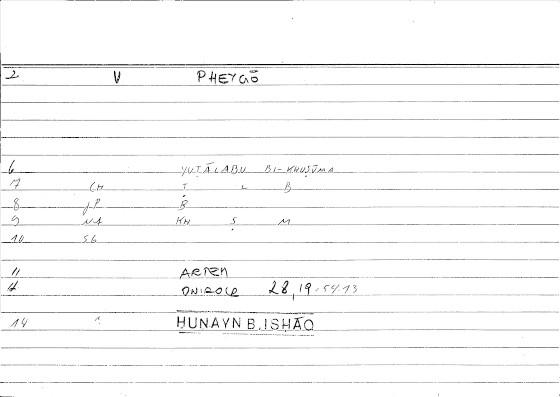 2 V PHEYGŌ
6 YUṬĀLABU BI-KHUṢŪMA
7 CH Ṭ L B
8 JP B
9 NA KH Ṣ M
10 SG
11 ARTEM
ONIROCR 28,19.54.13
14 HUNAYN B.ISHĀQ